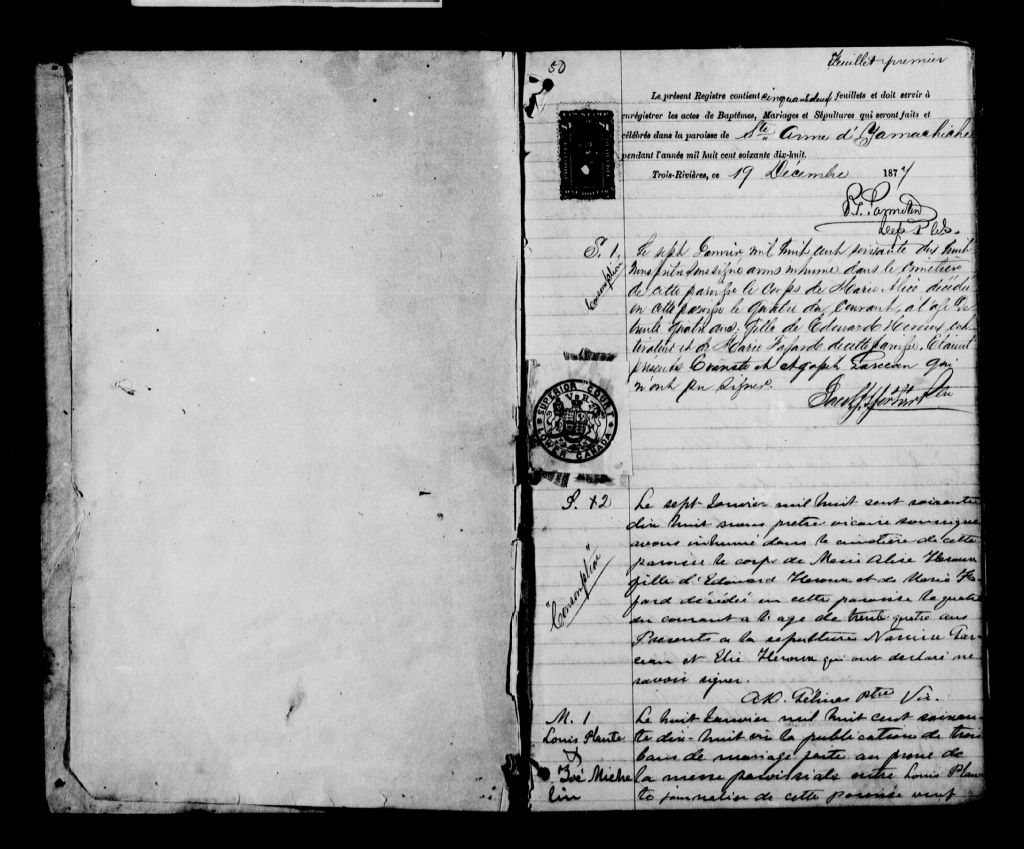 50
Feuillet premier
Le présent Registre contient cinquante deux feuillets et doit servir à
enrégistrer les actes de Baptêmes, Mariages et Sépultures qui seront faits et
célébrés dans la paroisse de Ste Anne d'Yamachiche
pendant l'année mil huit cent soixante dix-huit.
Trois-Rivières, ce 19 Décembre 1877
Dep. P.
S. 1.
Consomption
Le sept Janvier mil huit cent soixante dix huit
nous prêtre soussigné avons inhumé dans le cimetière
de cette paroisse le corps de Marie Alice décédée
en cette paroisse le quatre du courant, à l'age de
trente quatre ans, fille de Edouard Heroux cul
tivateur et de Marie Lafarde de cette paroisse. Etaient
présents Evariste et Agapit Garceau qui
n'ont pu signer.
Ptre
SUPERIOR COURT
V R
LOWER CANADA
S. X2
"Consomption"
Le sept Janvier mil huit cent soixante
dix huit nous pretre vicaire soussigné
avons inhumé dans le cimetière de cette
paroisse le corps de Marie Alise Heroux
fille d'Edouard Heroux et de Marie
décédée en cette paroisse le quatre
du courant a l'age de trente quatre ans
Presents a la sepulture Narcisse Gar-
ceau et Elie Heroux qui ont declaré ne
savoir signer.
Gélinas Ptre Vic.
M. 1
Louis Plante
X
Zoé Miche
lin
Le huit Janvier mil huit cent soixan-
te dix-huit vu la publication de trois
bans de mariage faite au prone de
la messe paroissiale entre Louis Plan
te journalier de cette paroisse veuf